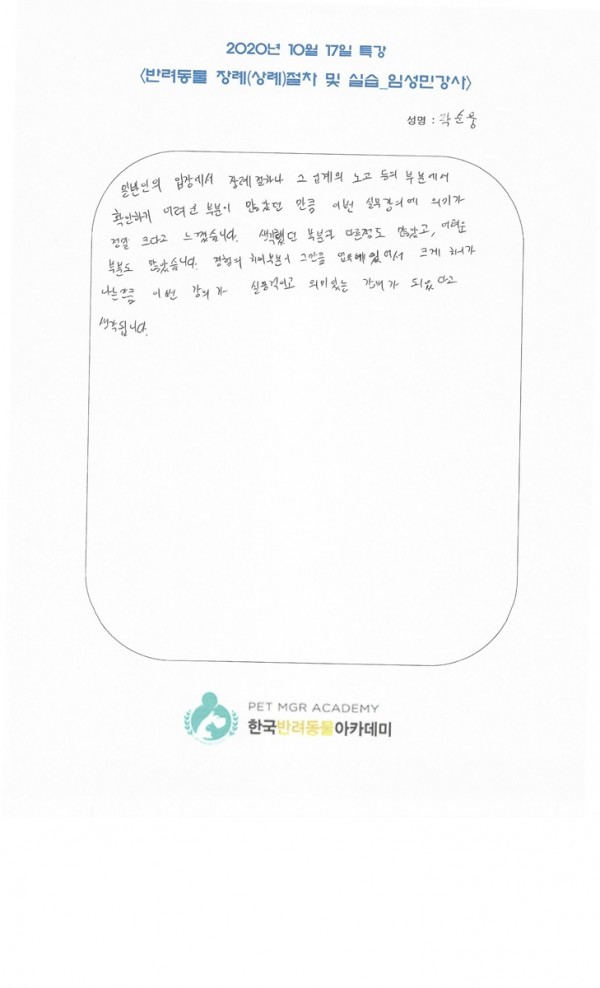 2020년 10월 17일 특강
<반려동물 장례(상례)절차 및 실습_임성민강사>
성명 : 곽순웅
일반인의 입장에서 장례절차나 그 업계의 노고 등의 부분에서
확인하기 어려운 부분이 많았던 만큼 이번 실무강의에 의미가
정말 크다고 느꼈습니다. 생각했던 부분과 다른점도 많았고, 어려운
부분도 많았습니다. 경험의 차이부분이 그만큼 업무에 있어서 크게 차이가
나는만큼 이번 강의가 실용적이고 의미있는 강의가 되었다고
생각됩니다.
PET MGR ACADEMY
한국반려동물아카데미